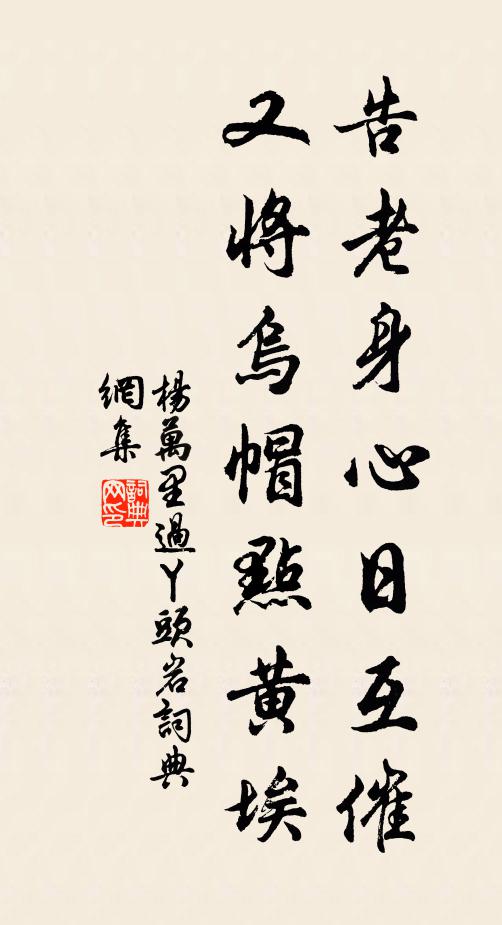 告老身心日互催
又將烏帽點黃埃
楊萬里過丫頭岩詞典
網集
詞典
网印